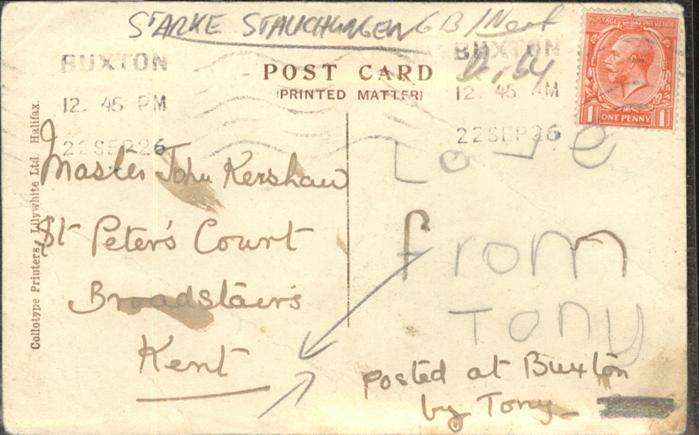 STARKE STAUCHUNGEN GB/
BUXTON
12. 45 PM
22 SEP 26
POST CARD
(PRINTED MATTER)
BUXTON
12. 45 PM
22 SEP 26
POSTAGE REVENUE
1 ONE PENNY 1
Collotype Printers, Lilywhite Ltd. Halifax.
Master John Kershaw
St Peter's Court
Broadstairs
Kent
Love
from
Tony
posted at Buxton
by Tony